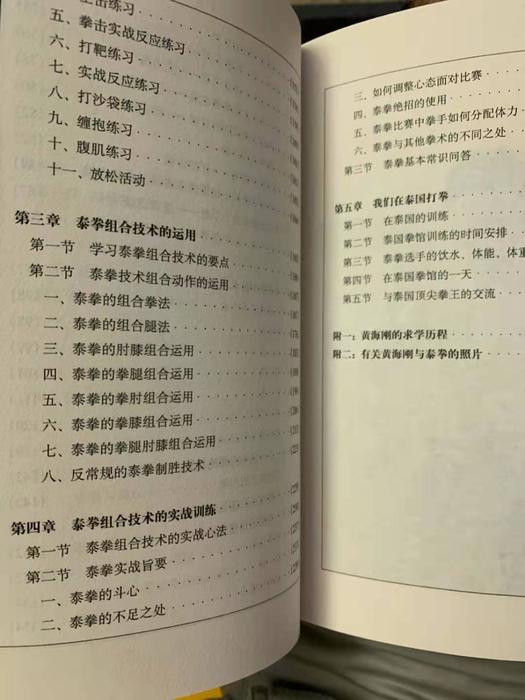 五、拳击实战反应练习
六、打靶练习
七、实战反应练习
八、打沙袋练习
九、缠抱练习
十、腹肌练习
十一、放松活动
第三章 泰拳组合技术的运用
第一节 学习泰拳组合技术的要点
第二节 泰拳技术组合动作的运用
一、泰拳的组合拳法
二、泰拳的组合腿法
三、泰拳的肘膝组合运用
四、泰拳的拳腿组合运用
五、泰拳的拳肘组合运用
六、泰拳的拳膝组合运用
七、泰拳的拳腿肘膝组合运用
八、反常规的泰拳制胜技术
第四章 泰拳组合技术的实战训练
第一节 泰拳组合技术的实战心法
第二节 泰拳实战旨要
一、泰拳的斗心
二、泰拳的不足之处
三、如何调整心态面对比赛
四、泰拳绝招的使用
五、泰拳比赛中拳手如何分配体力
六、泰拳与其他拳术的不同之处
第三节 泰拳基本常识问答
第五章 我们在泰国打拳
第一节 在泰国的训练
第二节 泰国拳馆训练的时间安排
第三节 泰拳选手的饮水、体能、体重
第四节 在泰国拳馆的一天
第五节 与泰国顶尖拳王的交流
附一:黄海刚的求学历程
附二:有关黄海刚与泰拳的照片